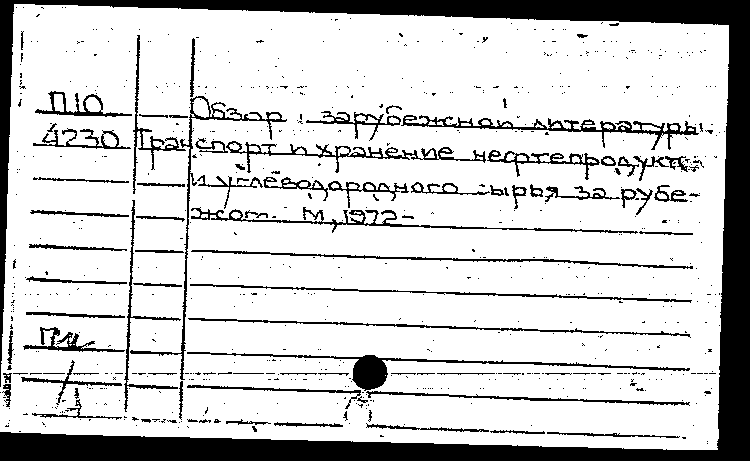 П10 Обзор зарубежной литературы.
4230 Транспорт и хранение нефтепродуктов
и углеводородного сырья за рубе-
жом. М., 1972-